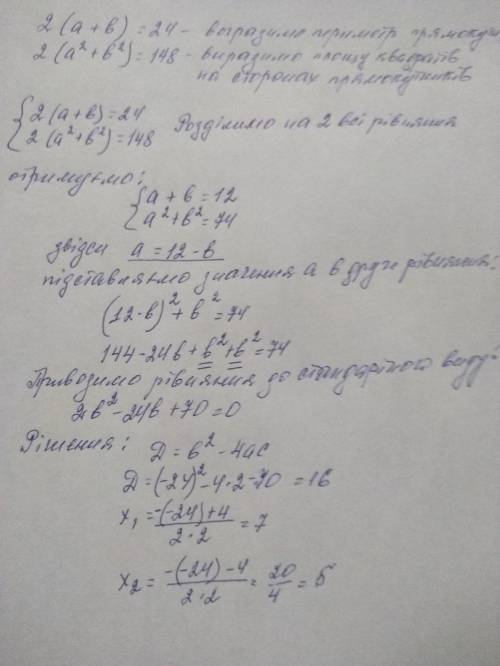 2(a+b)=24 - виразимо периметр
2(a²+b²)=148 - виразимо площу квадратів
на сторонах прямокутників
{2(a+b)=24
2(a²+b²)=148 Розділимо на 2 всі рівняння
отримуємо:
{a+b=12
a²+b²=74
звідси a=12-b
підставляємо значення a в друге рівняння:
(12-b)²+b²=74
144-24b+b²+b²=74
Приводимо рівняння до стандартного виду:
2b²-24b+70=0
Рішення: D=b²-4ac
D=(-24)²-4·2·70=16
x₁=-(-24)+4/2·2=7
x₂=-(-24)-4/2·2=20/4=5